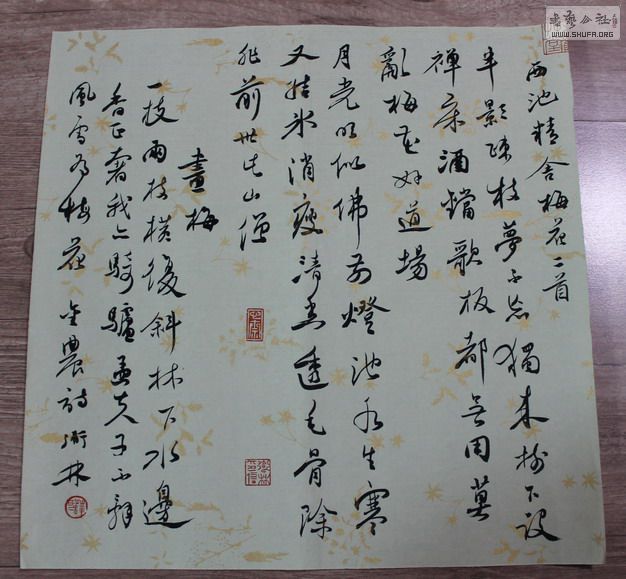 書藝公社
WWW.SHUFA.ORG
西池精舍梅花二首
半影疎枝夢不忘獨来树下设
禅床酒鐺歌板都无用莫
亂梅花好道場
月光明似佛前燈池水生寒
又结冰消瘦清香透毛骨除
非前世是山僧
畫梅
一枝兩枝横復斜林下水邊
香正奢我亦騎驢孟夫子不辞
風雪为梅花 金農詩 林